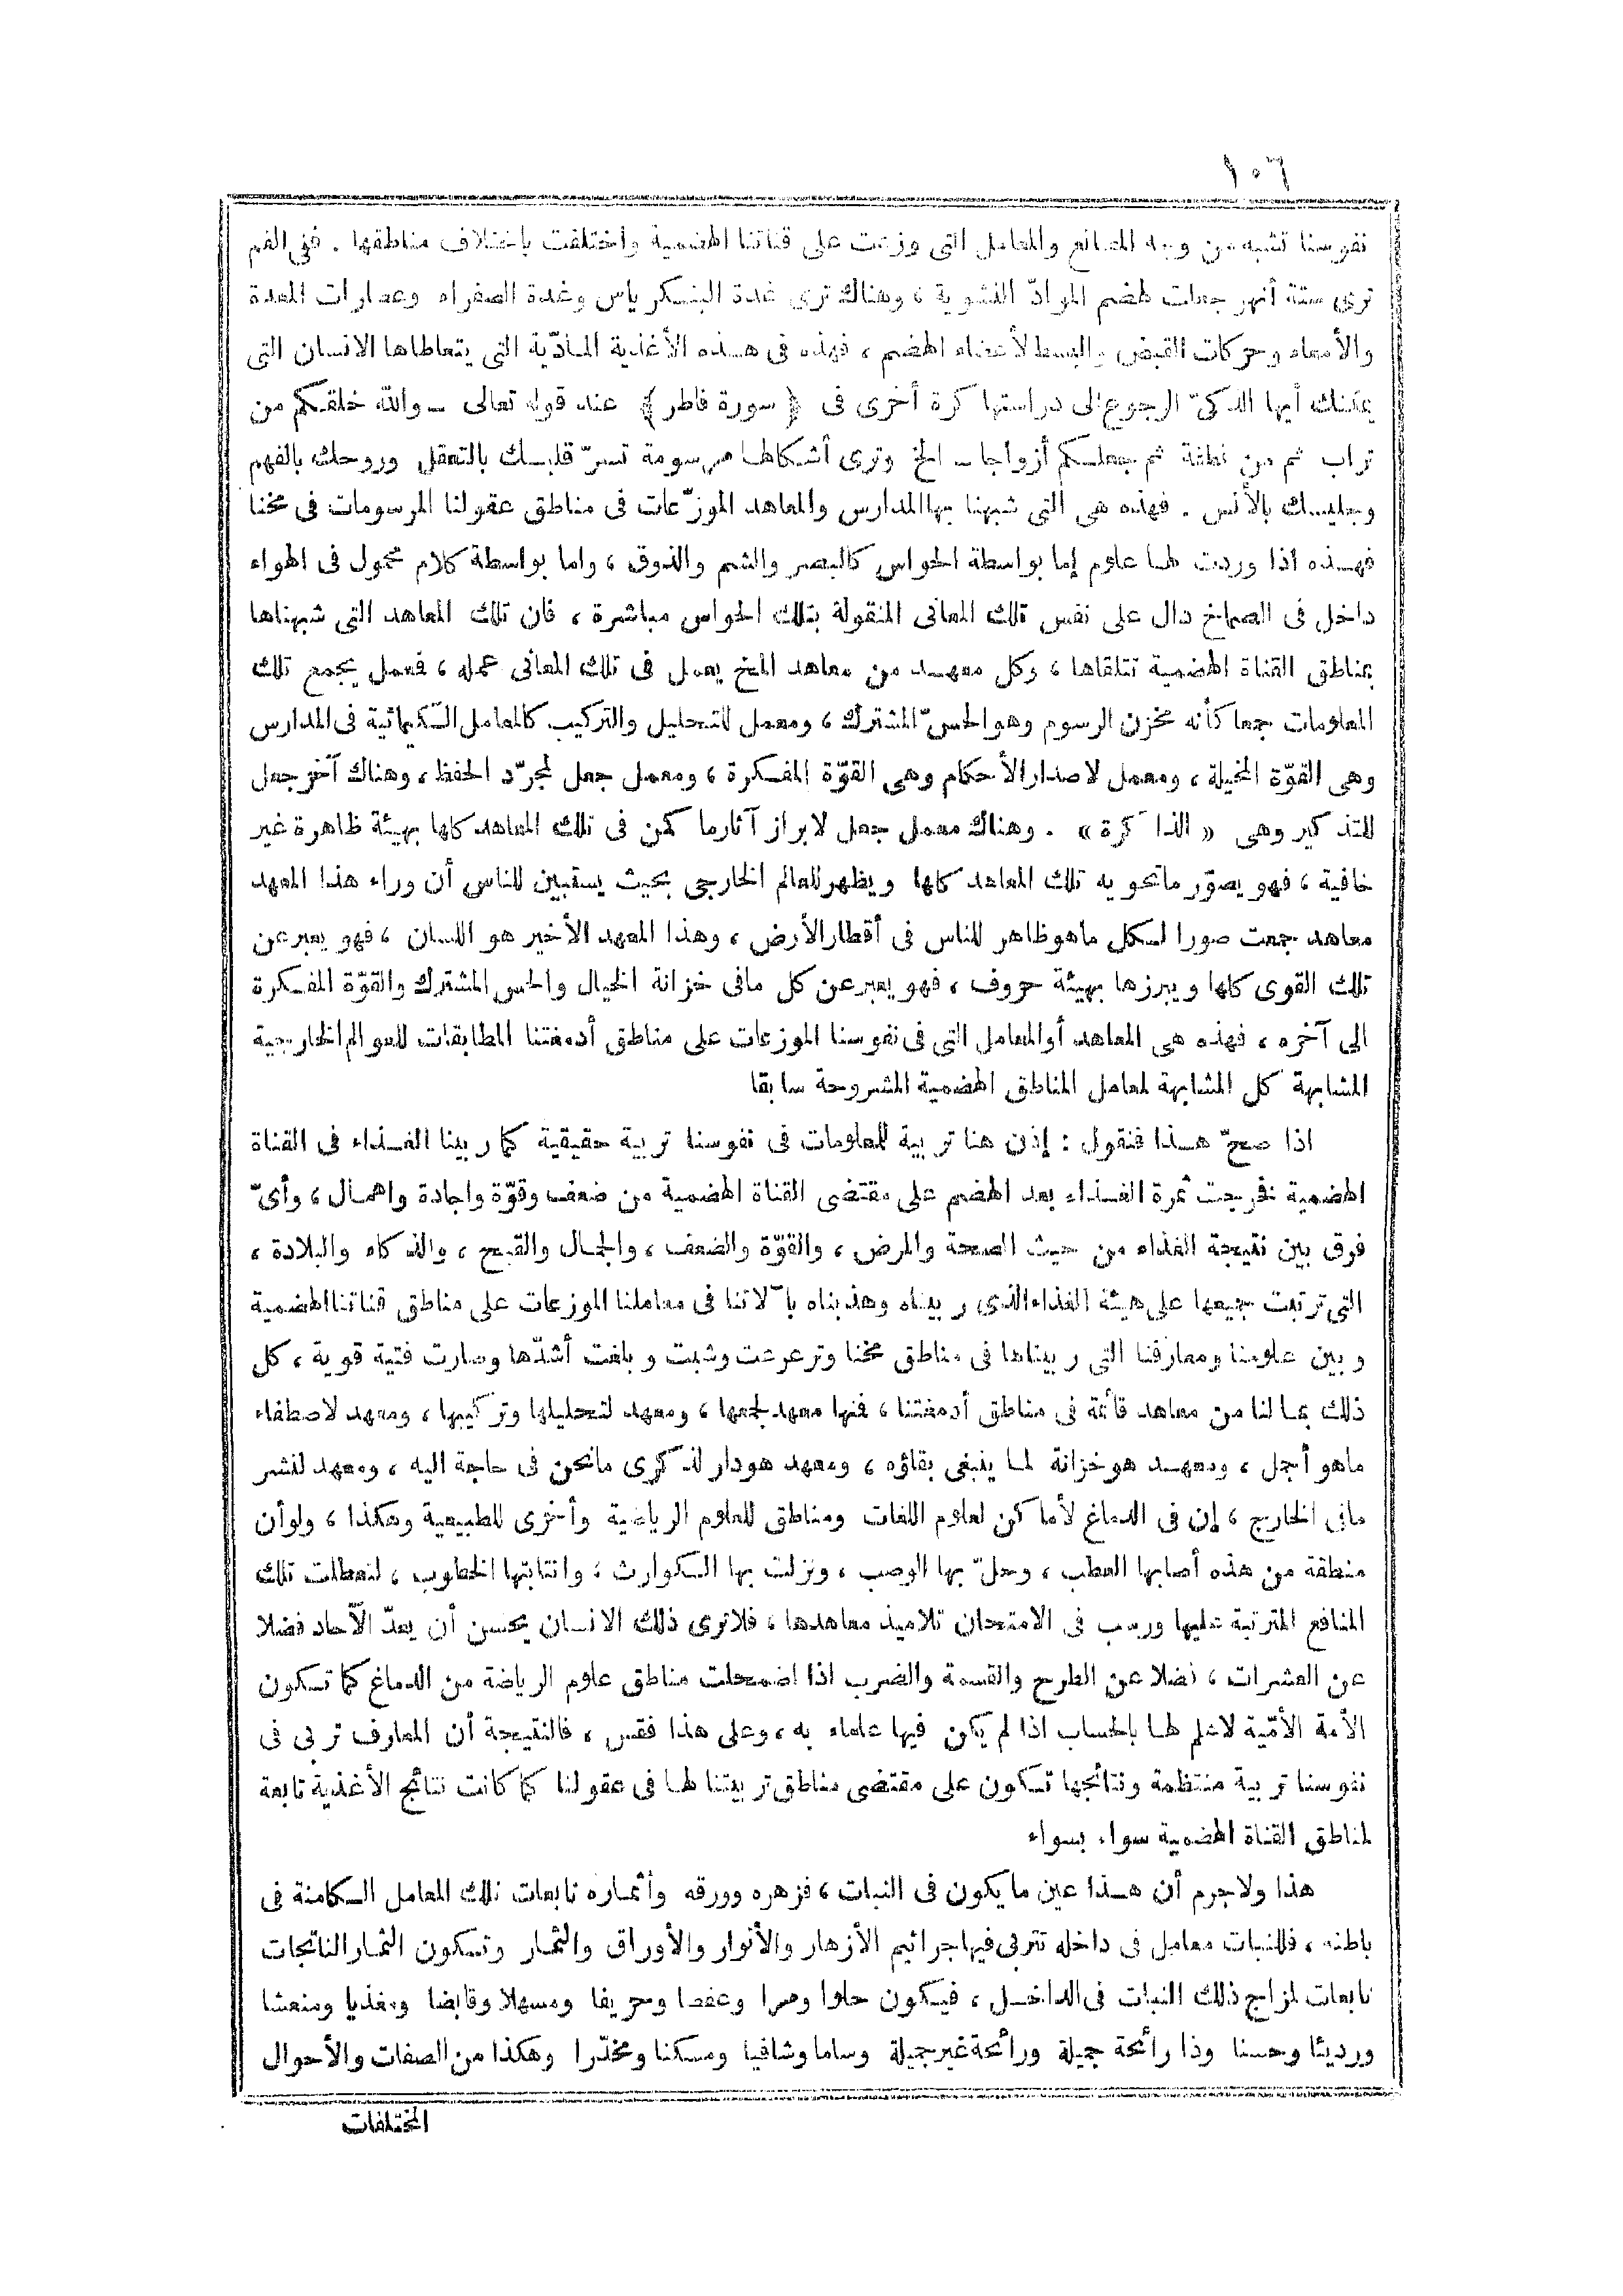 ١٠٦
نفوسنا تشبه من وجه المصانع والمعامل التى وزعت على قناتنا الهضمية واختلفت باختلاف مناطقها . ففى الفم
ترى ستة أنهر جعلت لهضم الموادّ النشوية ، وهناك ترى غدة البنكرياس وغدة الصفراء وعصارات المعدة
والأمعاء وحركات القبض والبسط لأعضاء الهضم ، فهذه فى هذه الأغذية المادّية التى يتعاطاها الانسان التى
يمكنك أيها الذكىّ الرجوع الى دراستها كرة أخرى فى ﴿ سورة فاطر ﴾ عند قوله تعالى ــ والله خلقكم من
تراب ثم من نطفة ثم جعلكم أزواجا ــ الخ وترى أشكالها مرسومة تسرّ قلبك بالتعقل وروحك بالفهم
وجليسك بالأنس . فهذه هى التى شبهنا بها المدارس والمعاهد الموزّعات فى مناطق عقولنا المرسومات فى مخنا
فهذه اذا وردت لها علوم إما بواسطة الحواس كالبصر والشم والذوق ، واما بواسطة كلام محمول فى الهواء
داخل فى الصماخ دال على نفس تلك المعانى المنقولة بتلك الحواس مباشرة ، فان تلك المعاهد التى شبهناها
بمناطق القناة الهضمية تتلقاها ، وكل معهد من معاهد المخ يعمل فى تلك المعانى عمله ، فعمل يجمع تلك
المعلومات جمعا كأنه مخزن الرسوم وهو الحسّ المشترك ، ومعمل للتحليل والتركيب كالمعامل الكيمائية فى المدارس
وهى القوّة المخيلة ، ومعمل لاصدار الأحكام وهى القوّة المفكرة ، ومعمل جعل لمجرّد الحفظ ، وهناك آخر جعل
للتذكير وهى « الذاكرة » . وهناك معمل جعل لابراز آثار ما كمن فى تلك المعاهد كلها بهيئة ظاهرة غير
خافية ، فهو يصوّر ماتحويه تلك المعاهد كلها ويظهر للعالم الخارجى بحيث يستبين للناس أن وراء هذا المعهد
معاهد جمعت صورا لكل ماهو ظاهر للناس فى أقطار الأرض ، وهذا المعهد الأخير هو اللسان ، فهو يعبر عن
تلك القوى كلها ويبرزها بهيئة حروف ، فهو يعبر عن كل مافى خزانة الخيال والحس المشترك والقوّة المفكرة
الى آخره ، فهذه هى المعاهد أو المعامل التى فى نفوسنا الموزعات على مناطق أدمغتنا المطابقات للعوالم الخارجية
المشابهة كل المشابهة لمعامل المناطق الهضمية المشروحة سابقا
اذا صحّ هذا فنقول : إذن هنا تربية للمعلومات فى نفوسنا تربية حقيقية كما ربينا الغذاء فى القناة
الهضمية فخرجت ثمرة الغذاء بعد الهضم على مقتضى القناة الهضمية من ضعف وقوّة واجادة واهمال ، وأىّ
فرق بين نتيجة الغذاء من حيث الصحة والمرض ، والقوّة والضعف ، والجمال والقبح ، والذكاء والبلادة ،
التى ترتبت جميعها على هيئة الغذاء الذى ربيناه وهذبناه بآلاتنا فى معاملنا الموزعات على مناطق قناتنا الهضمية
وبين علومنا ومعارفنا التى ربيناها فى مناطق مخنا وترعرعت وشبت وبلغت أشدّها وصارت فتية قوية ، كل
ذلك بما لنا من معاهد قائمة فى مناطق أدمغتنا ، فمنها معهد لجمعها ، ومعهد لتحليلها وتركيبها ، ومعهد لاصطفاء
ماهو أجمل ، ومعهد هو خزانة لما ينبغى بقاؤه ، ومعهد هو دار لذكرى مانحن فى حاجة اليه ، ومعهد لنشر
مافى الخارج ، إن فى الدماغ لأماكن لعلوم اللغات ومناطق للعلوم الرياضية وأخرى للطبيعية وهكذا ، ولو أن
منطقة من هذه أصابها العطب ، وحلّ بها الوصب ، ونزلت بها الكوارث ، وانتابتها الخطوب ، لتعطلت تلك
المنافع المترتبة عليها ورسب فى الامتحان تلاميذ معاهدها ، فلاترى ذلك الانسان يحسن أن يعدّ الآحاد فضلا
عن العشرات ، فضلا عن الطرح والقسمة والضرب اذا اضمحلت مناطق علوم الرياضة من الدماغ كما تكون
الأمة الأمّية لاعلم لها بالحساب اذا لم يكن فيها علماء به ، وعلى هذا فقس ، فالنتيجة أن المعارف تربى فى
نفوسنا تربية منتظمة ونتائجها تكون على مقتضى مناطق تربيتنا لها فى عقولنا كما كانت نتائج الأغذية تابعة
لمناطق القناة الهضمية سواء بسواء
هذا ولاجرم أن هذا عين مايكون فى النبات ، فزهره وورقه وأثماره تابعات تلك المعامل الكامنة فى
باطنه ، فللنبات معامل فى داخله تتربى فيها جراثيم الأزهار والأنوار والأوراق والثمار وتكون الثمار الناتجات
تابعات لمزاج ذلك النبات فى الداخل ، فيكون حلوا ومرا وعفصا وحريفا ومسهلا وقابضا ومغذيا ومنعشا
ورديئا وحسنا وذا رائحة جميلة ورائحة غير جميلة وساما وشافيا ومسكنا ومخدّرا وهكذا من الصفات والأحوال
المختلفات